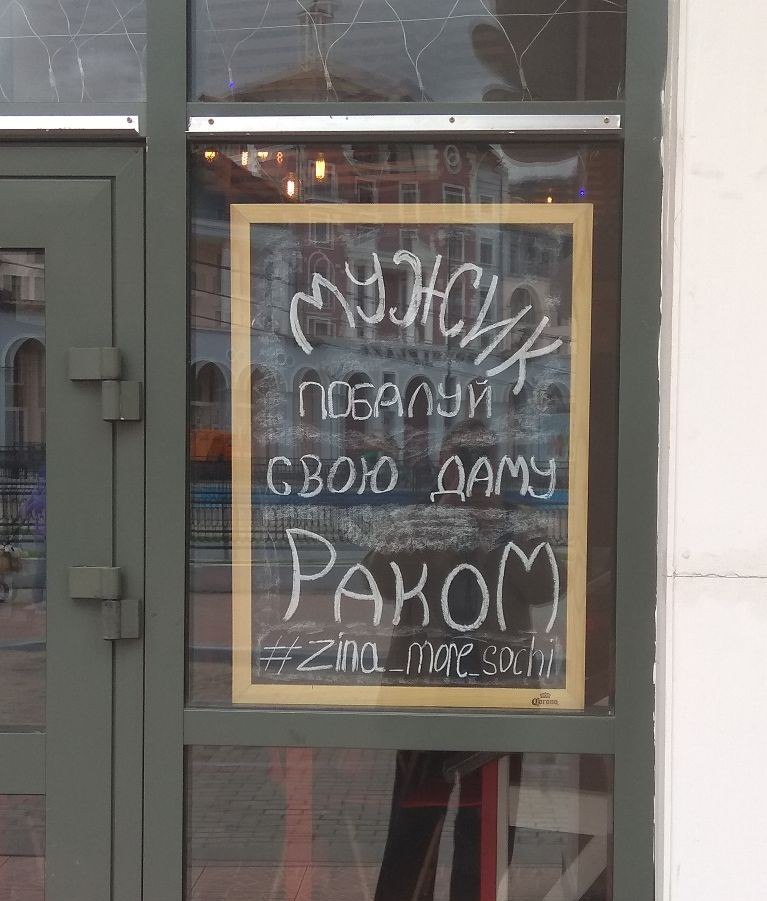 МУЖИК
ПОБАЛУЙ
СВОЮ ДАМУ
РАКОМ
#zina_more_sochi
Corona